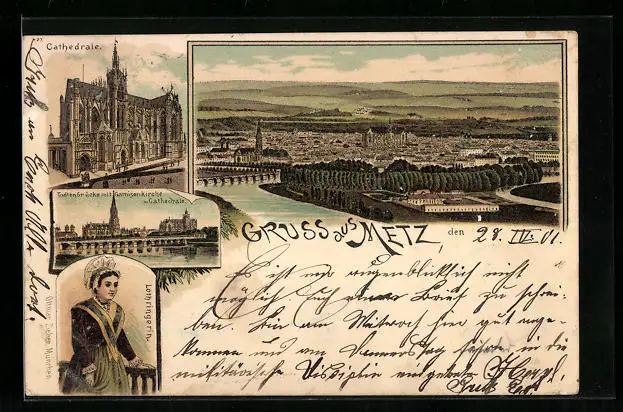 Cathedrale.
Todtenbrücke mit Garnisonkirche
u. Cathedrale.
Lothringerin.
Ottmar Zieher, München
GRUSS aus METZ,
den 28. IV. 01.
Es ist mir augenblicklich nicht
möglich Euch einen Brief zu schrei-
ben. Bin am Mittwoch hier gut ange-
kommen und am Donnerstag in die
militärische Disziplin
Gruß an Euch Alle